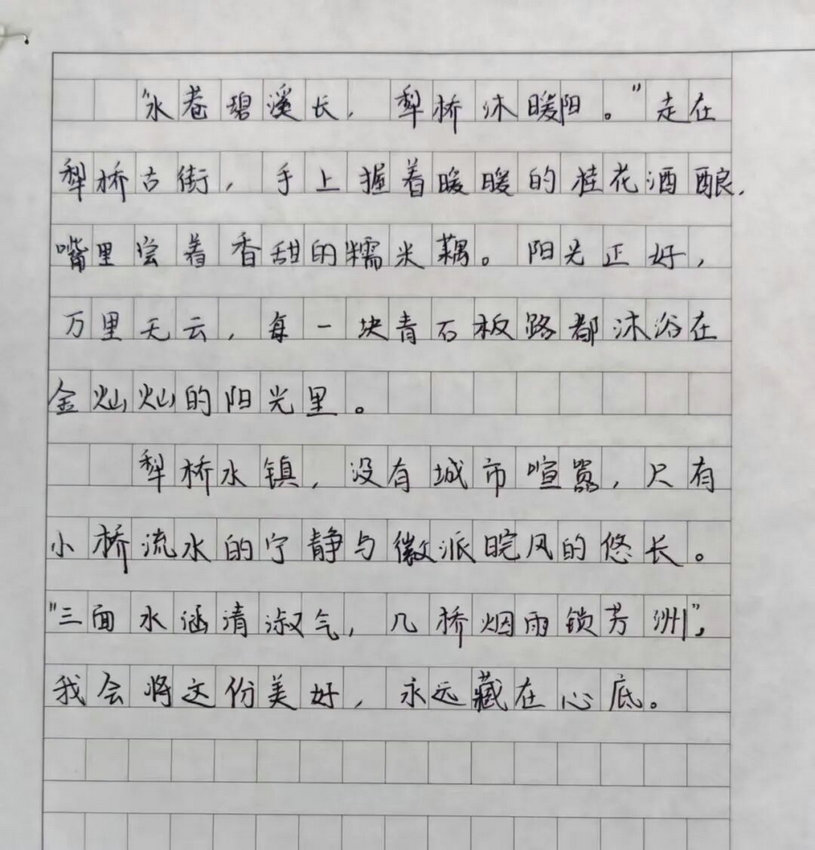 “水巷碧溪长，犁桥沐暖阳。”走在
犁桥古街，手上握着暖暖的桂花酒酿，
嘴里尝着香甜的糯米藕。阳光正好，
万里无云，每一块青石板路都沐浴在
金灿灿的阳光里。
犁桥水镇，没有城市喧嚣，只有
小桥流水的宁静与徽派皖风的悠长。
“三面水涵清淑气，几桥烟雨锁芳洲”，
我会将这份美好，永远藏在心底。